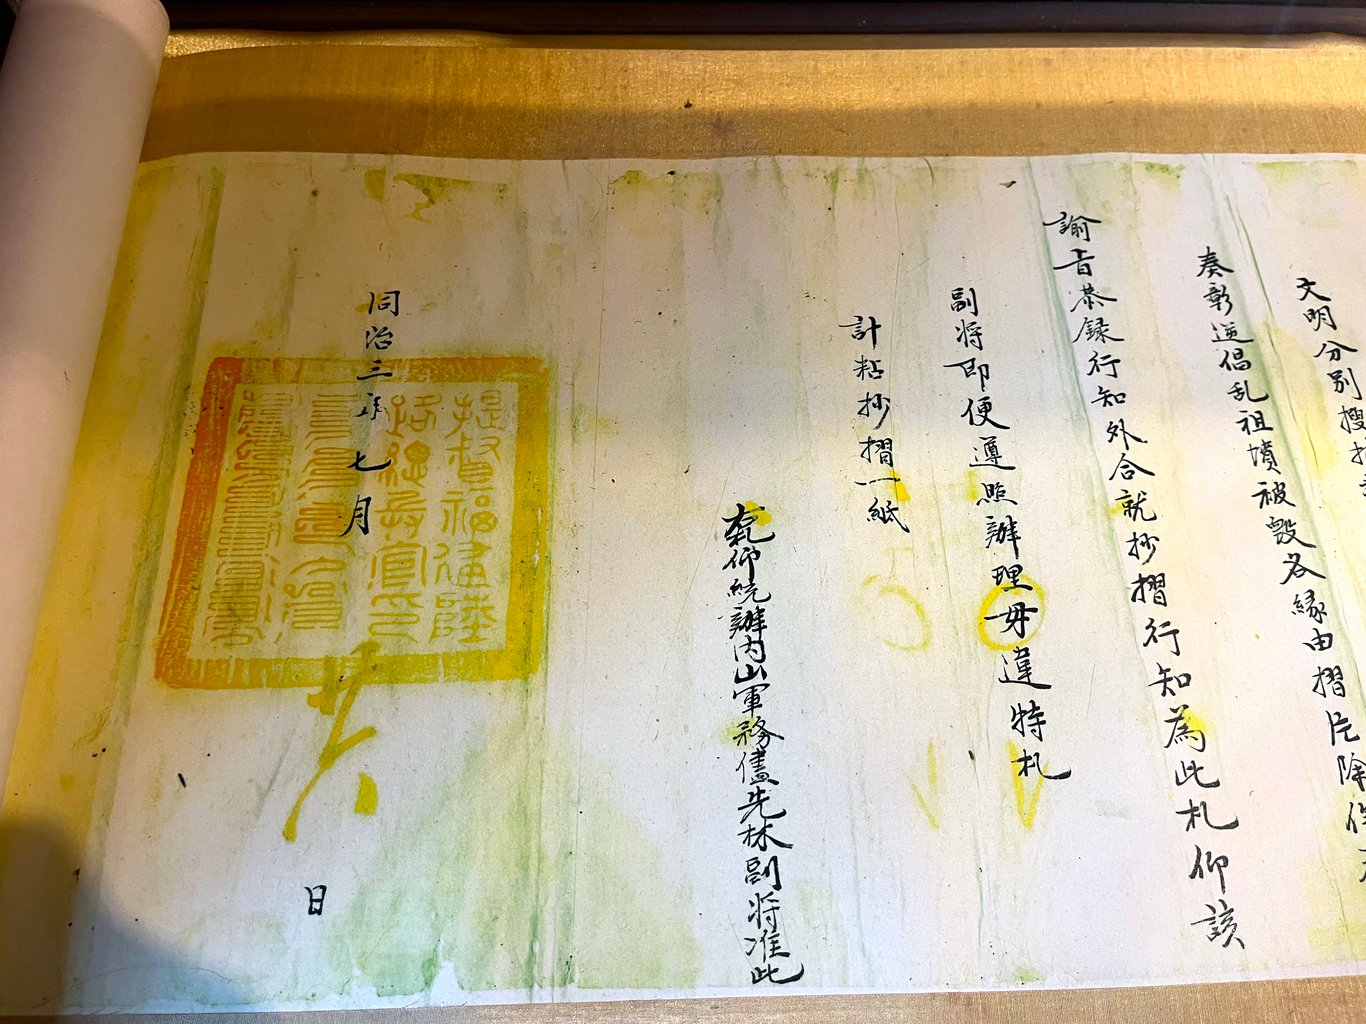 文明分别搜掘
奏彰逆倡乱祖墳被毀各縁由摺片除
諭旨恭録行知外合就抄摺行知為此札仰該
副将即便遵照辦理毋違特札
計粘抄摺一紙
仰統辦内山軍務儘先林副将准此
同治三年七月
日
提督福建陸
路總兵官印